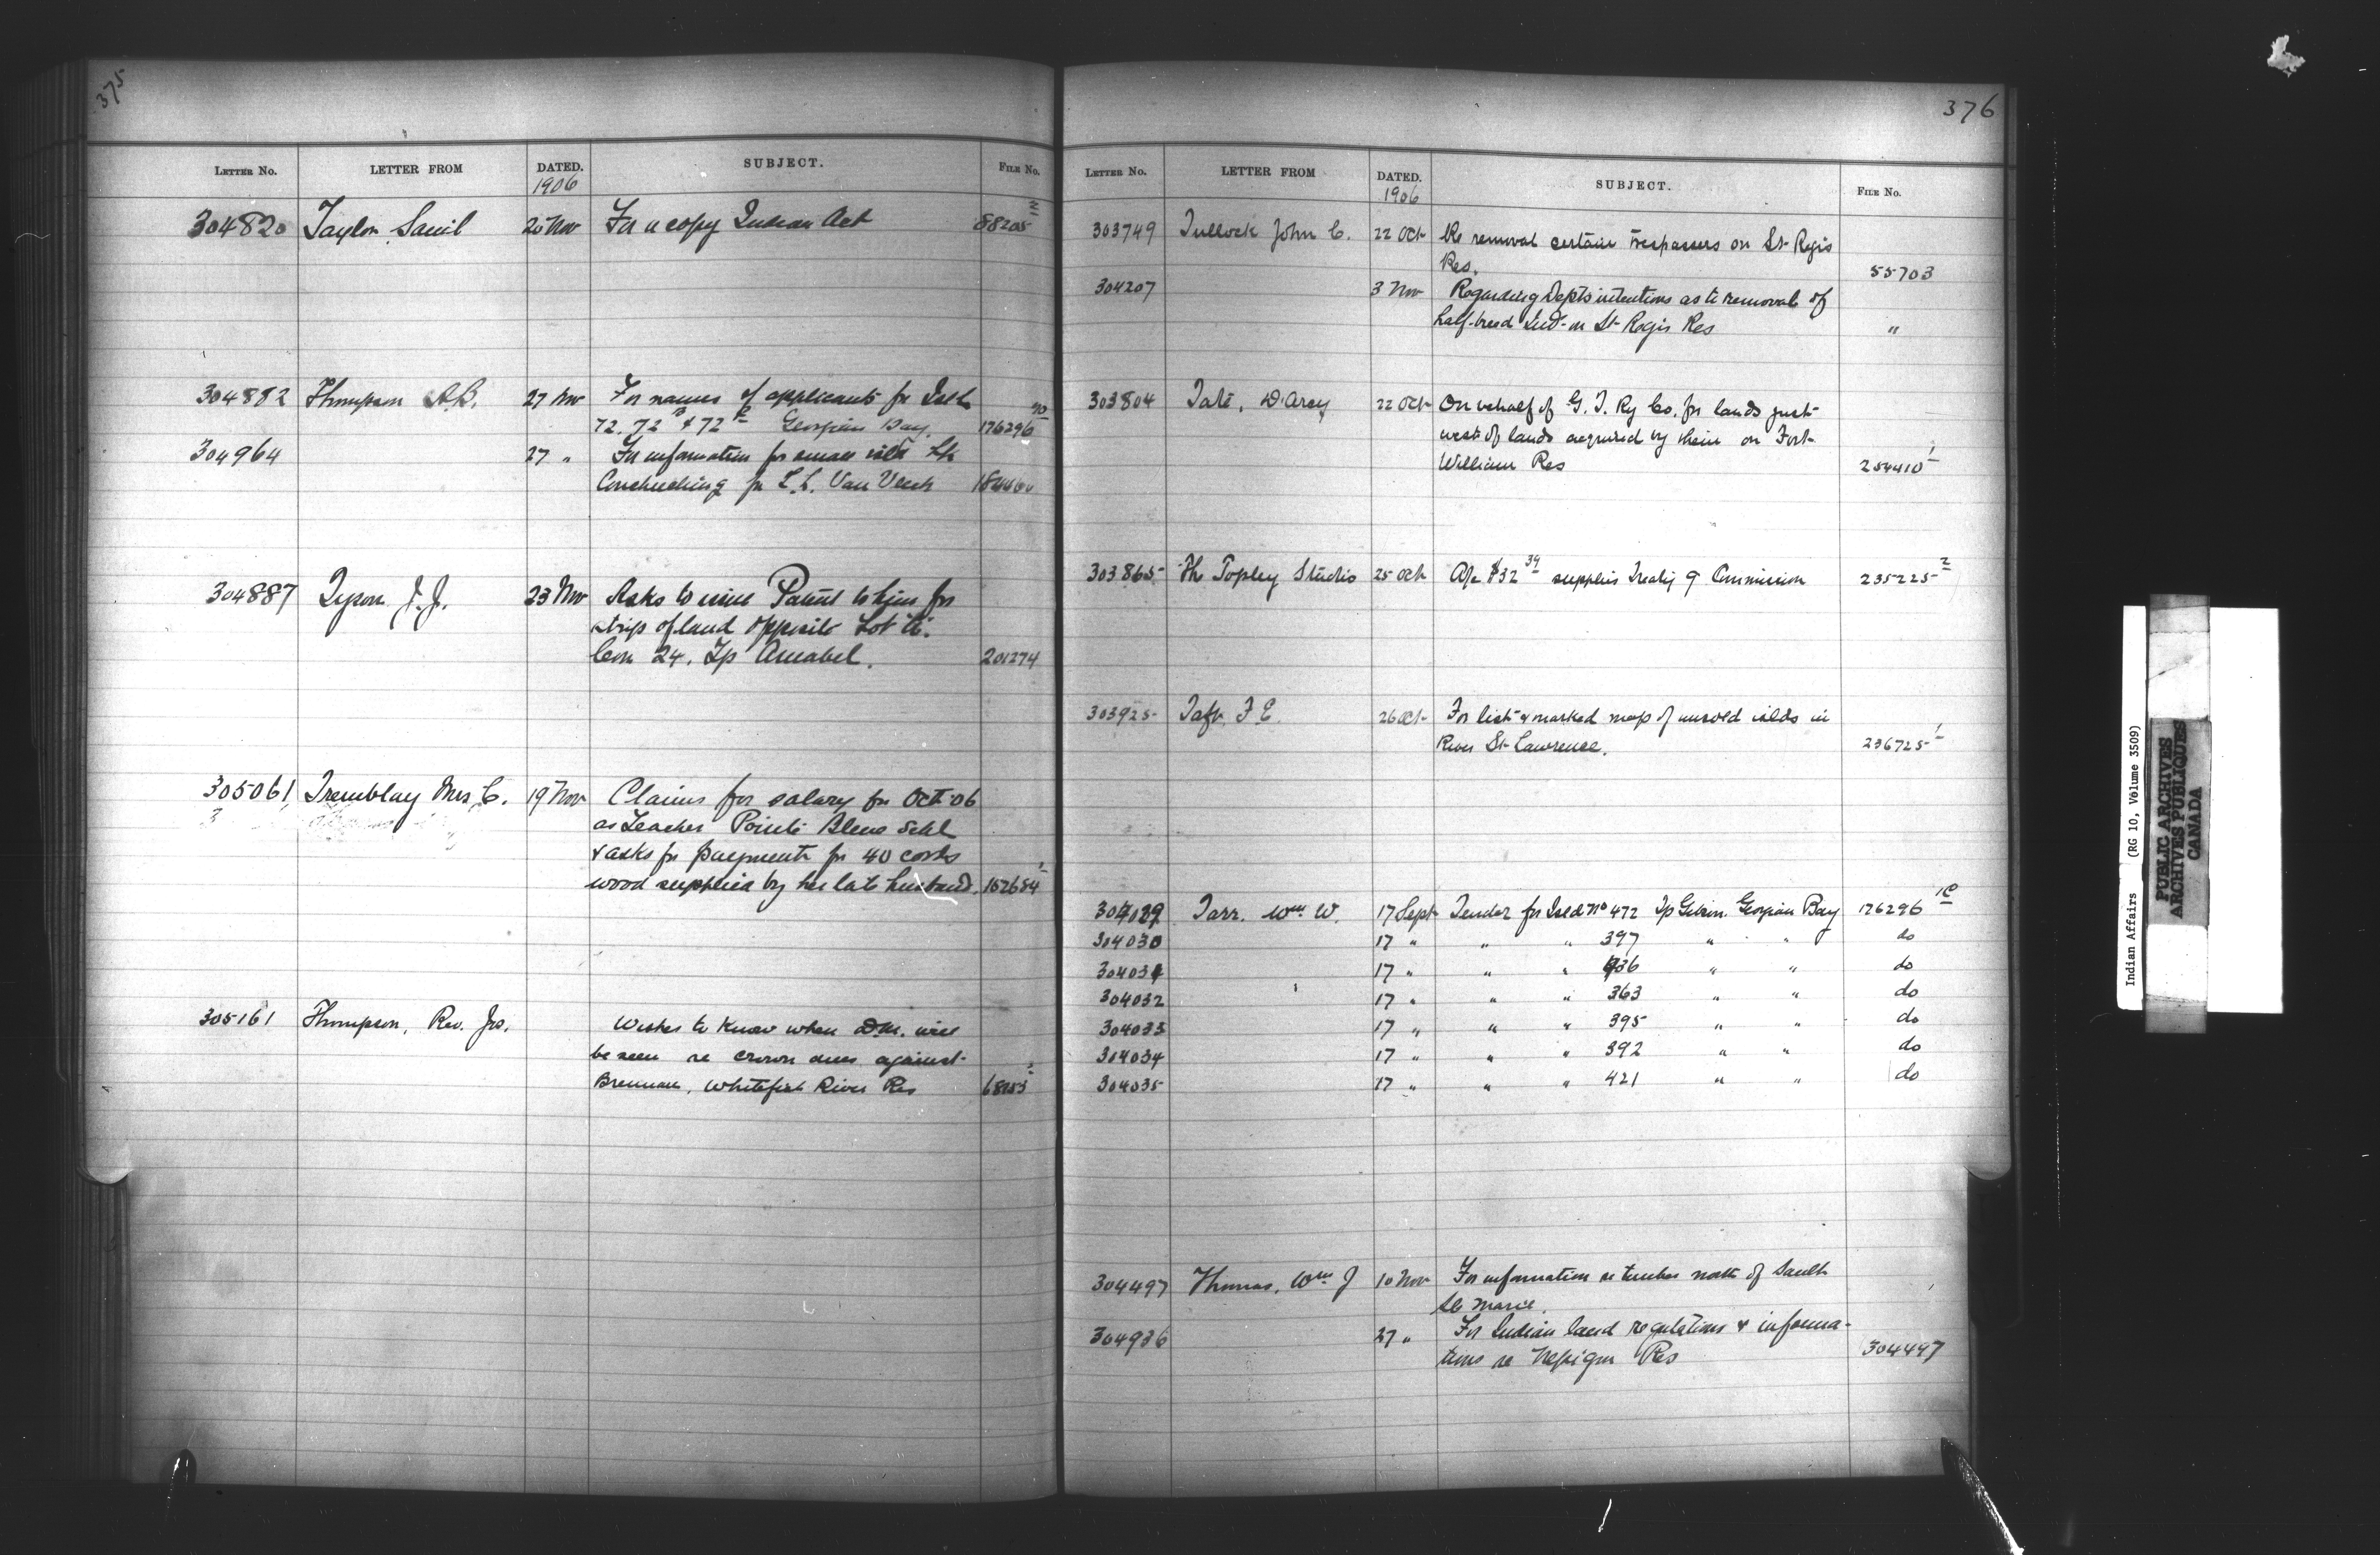 375
LETTER No. LETTER FROM DATED. SUBJECT. FILE No.
1906
304820 Taylor Saml 20 Nov For a copy Indian Act 88205
304882 Thompson A.B. 27 Nov For names of applicants for Isld
72. 72 B & 72 Georgian Bay 176296
304964 27 " For information for small isld Lk
Couchiching for L.L. Van Vleck
304887 Tyson J.J. 23 Nov Asks to issue Patent to him for
strip of land opposite Lot A.
Con 24. Tp Amabel. 201274
305061 Tremblay Mrs C. 19 Nov Claims for salary for Oct. 06
as Teacher Pointe Bleue Schl
& asks for payment for 40 cords
wood supplied by her late husband. 162684 1
305161 Thompson, Rev. Jas. Wishes to know when D.M. will
be seen re crown dues against
Brennan, Whitefish River Res
376
LETTER No. LETTER FROM DATED. SUBJECT. FILE No.
1906
303749 Tullock John C. 22 Oct Re removal certain trespassers on St Regis
Res. 55703
304207 3 Nov Regarding Depts intentions as to removal of
half-breed Inds on St Regis Res "
303804 Tate, D'Arcy 22 Oct On behalf of G. T. Ry Co. for lands just
west of lands acquired by them on Fort
William Res 254410 1
303865 The Topley Studio 25 Oct A/c $32 34 supplies Treaty 9 Commission 235225 2
303925 Taft F E. 26 Oct For list & marked map of unsold islds in
River St Lawrence. 236725 1
304029 Tarr. Wm W. 17 Sept Tender for Isld No 472 Tp Gibson Georgian Bay 176296 1C
304030 17 " " " 397 " " do
304031 17 " " " 436 " " do
304032 17 " " " 363 " " do
304033 17 " " " 395 " " do
304034 17 " " " 392 " " do
304035 17 " " " 421 " " do
304497 Thomas, Wm J 10 Nov For information re timber north of Sault
Ste Marie.
304936 27 " For Indian land regulations & informa-
tions re Nepigon Res 304497
Indian Affairs (RG 10, Volume 3509)
PUBLIC ARCHIVES
ARCHIVES PUBLIQUES
CANADA